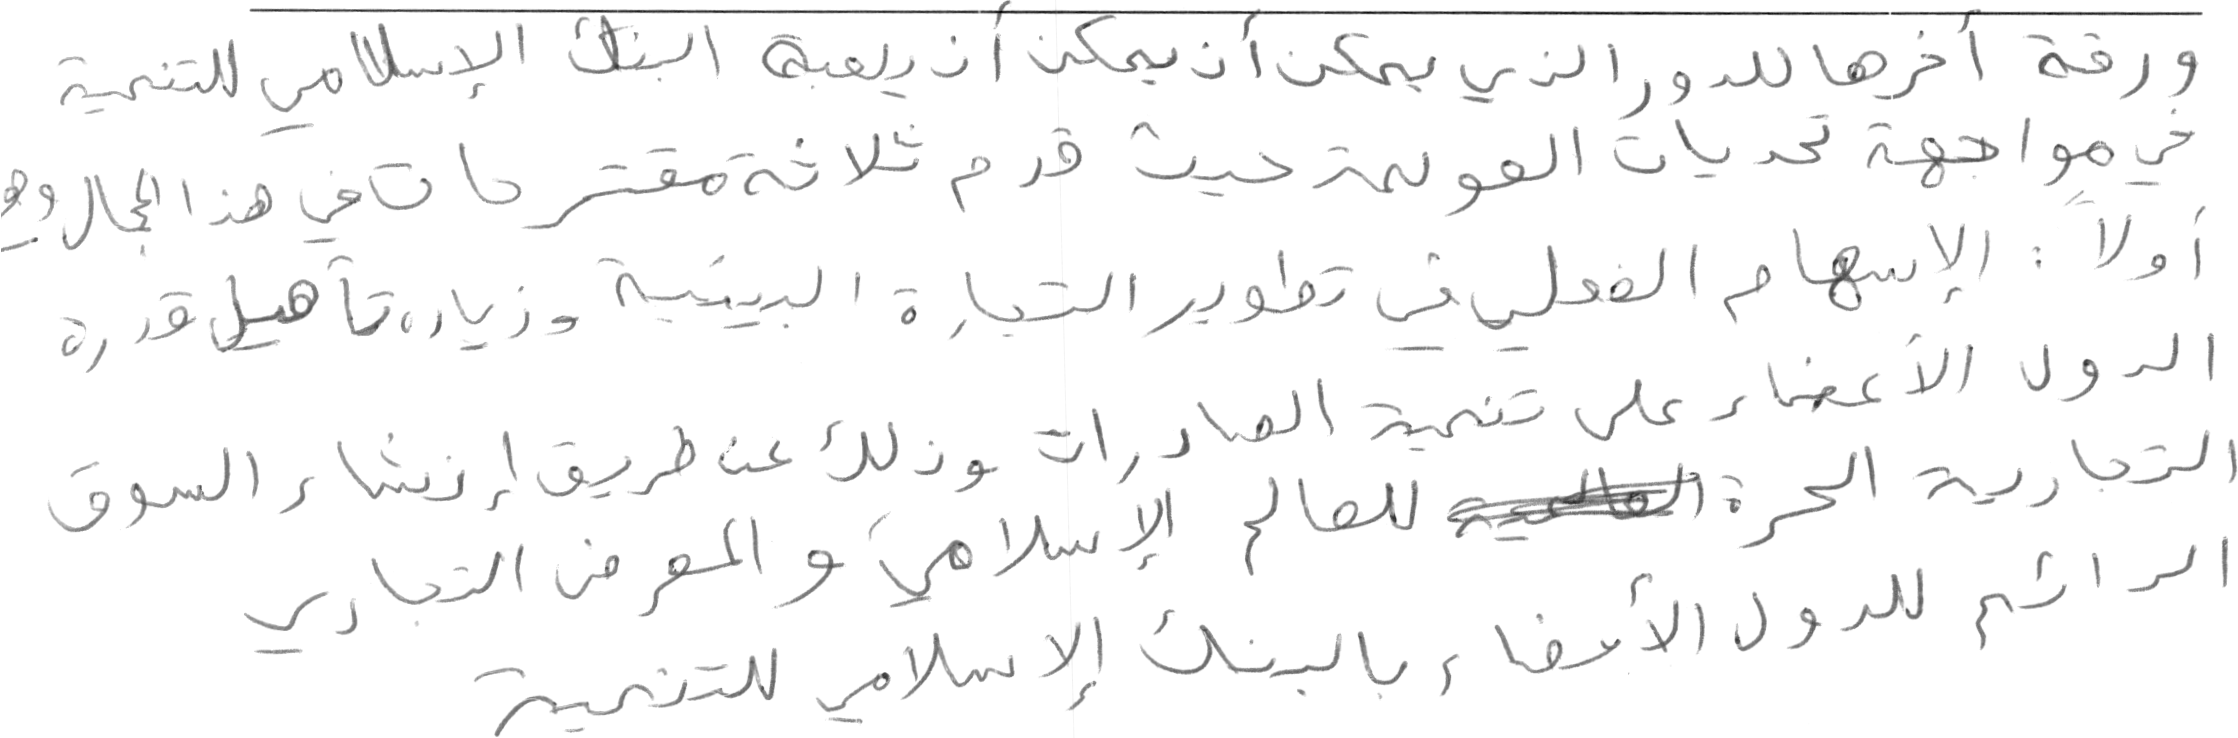 ورقة أخرها للدور الذي يمكن أن يمكن أن يلعبه البنك الإسلامي للتنمية
في مواجهة تحديات العولمة حيث قدم ثلاثة مقترحات في هذا المجال وهي
أولاً : الإسهام الفعلي في تطوير التجارة البينية وزياده تأهيل قدره
الدول الأعضاء على تنمية الصادرات وذلك عن طريق إنشاء السوق
التجارية الحرة للعالم الإسلامي والمعرض التجاري
الدائم للدول الأعضاء بالبنك الإسلامي للتنمية